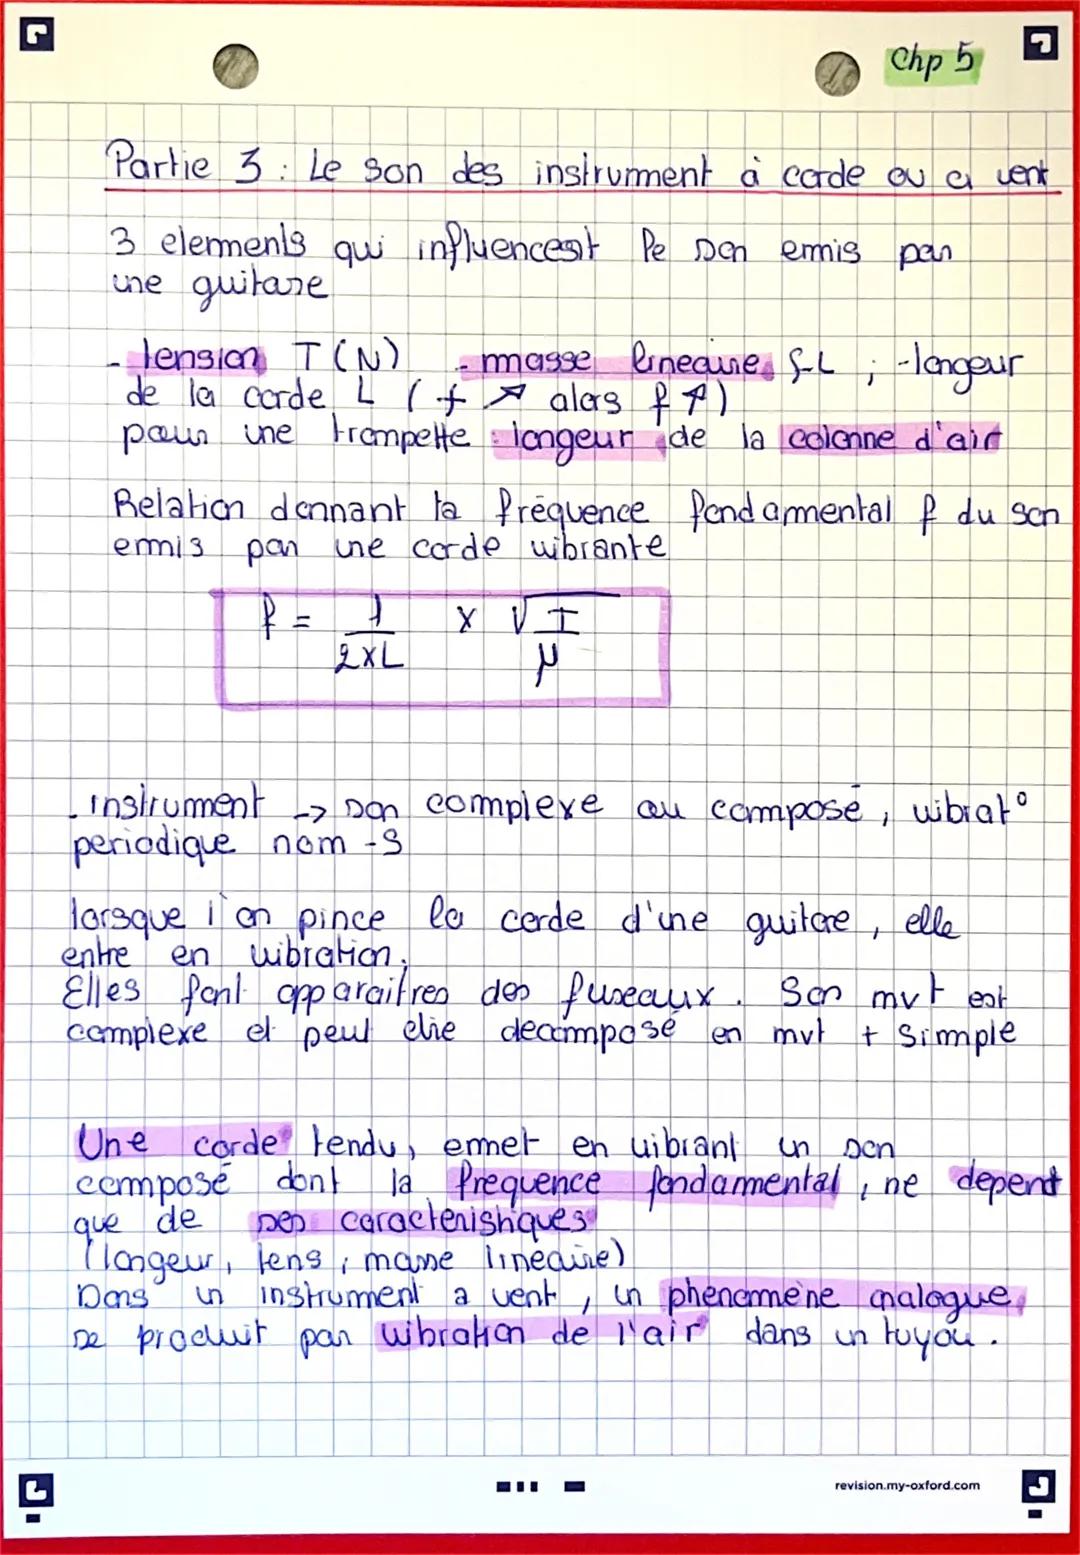 Chp 5
Partie 3 : Le son des instrument à corde ou a vent
3 elements qui influencent le son emis par
une guitare
- tension T(N) - masse lineaire ; -longeur
de la corde L (+ ↗ alors f ↗)
pour une trompette : longeur de la colonne d'air
Relation donnant la fréquence fondammental f du son
emis par une corde vibrante
f = 1 / 2×L × √T/μ
- instrument → son complexe ou composé, vibrat°
periodique nom -S
lorsque l'on pince la corde d'une guitare, elle
entre en vibration.
Elles font apparaitres des fuseaux. Son mvt est
complexe et peut etre decomposé en mvt + simple
Une corde tendu, emet en vibrant un son
composé dont la frequence fondammental, ne depent
que de ses caracteristiques
(longeur, tens, masse lineaire)
Dans un instrument a vent, un phenomène analogue
se produit par vibration de l'air dans un tuyau.
revision.my-oxford.com